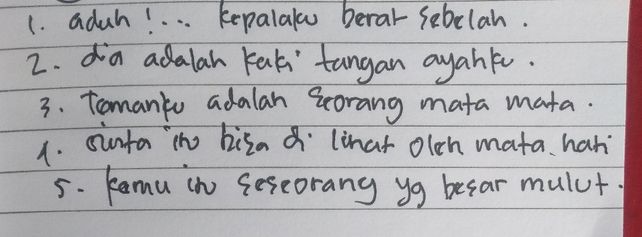 1. aduh !... kepalaku berat sebelah.
2. dia adalah kaki tangan ayahku.
3. Temanku adalah seorang mata mata.
4. cinta itu bisa di lihat oleh mata hati
5. kamu itu seseorang yg besar mulut.